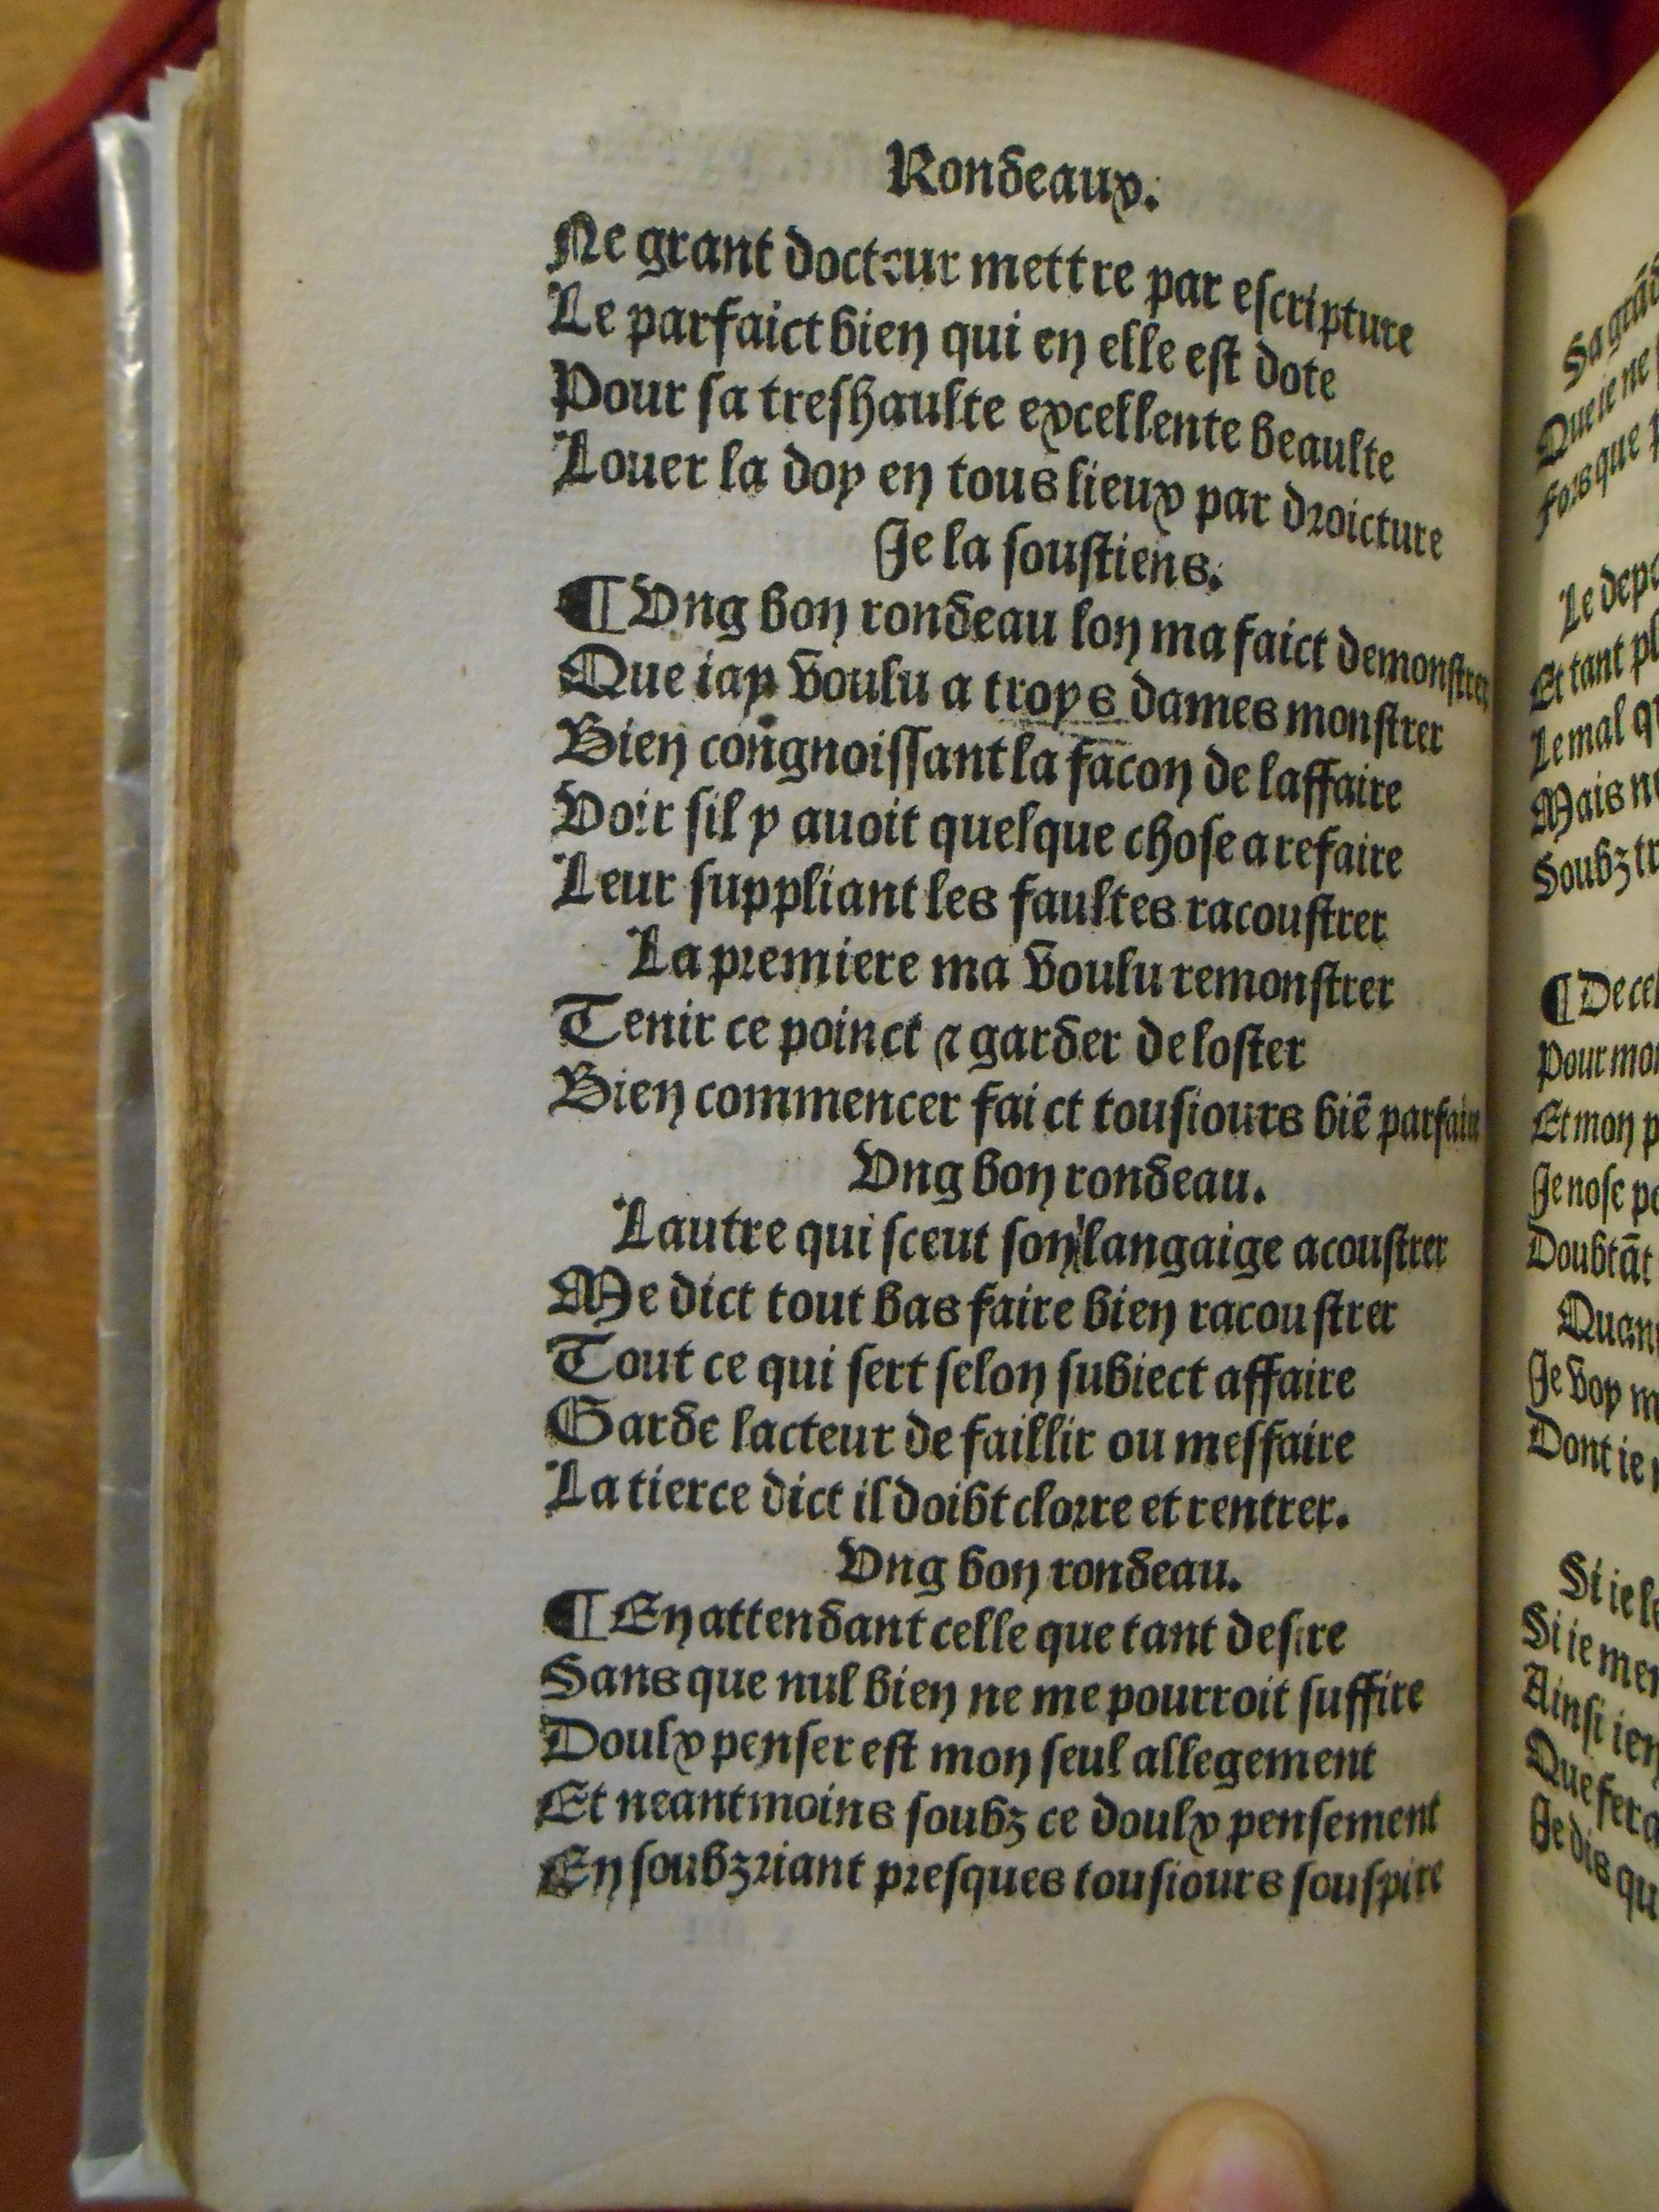 Rondeaux.
Ne grant docteur mettre par escripture
Le parfaict bien qui en elle est dote
Pour sa treshaulte excellente beaulte
Louer la doy en tous lieux par droicture
Je la soustiens.
¶ Ung bon rondeau lon ma faict demonstrer
Que iay voulu a troys dames monstrer
Bien congnoissant la facon de laffaire
Voir sil y auoit quelque chose a refaire
Leur suppliant les faultes racoustrer
La premiere ma voulu remonstrer
Tenir ce poinct ⁊ garder de loster
Bien commencer faict tousiours biē
Ung bon rondeau.
Lautre qui sceut son langaige acoustrer
Me dict tout bas faire bien racoustrer
Tout ce qui sert selon subiect affaire
Garde lacteur de faillir ou meffaire
La tierce dict il doibt clorre et rentrer.
Ung bon rondeau.
¶ En attendant celle que tant desire
Sans que nul bien ne me pourroit suffire
Doulx penser est mon seul allegement
Et neantmoins soubz ce doulx pensement
En soubzriant presques tousiours souspire
Que ie ne
Forsque
Et tant
Le mal
Mais
Soubz
¶ De
Pour
Et mon
Je nose
Doubtāt
Je voy
Dont ie
Si ie
Si ie
Ainsi
Que
Je dis